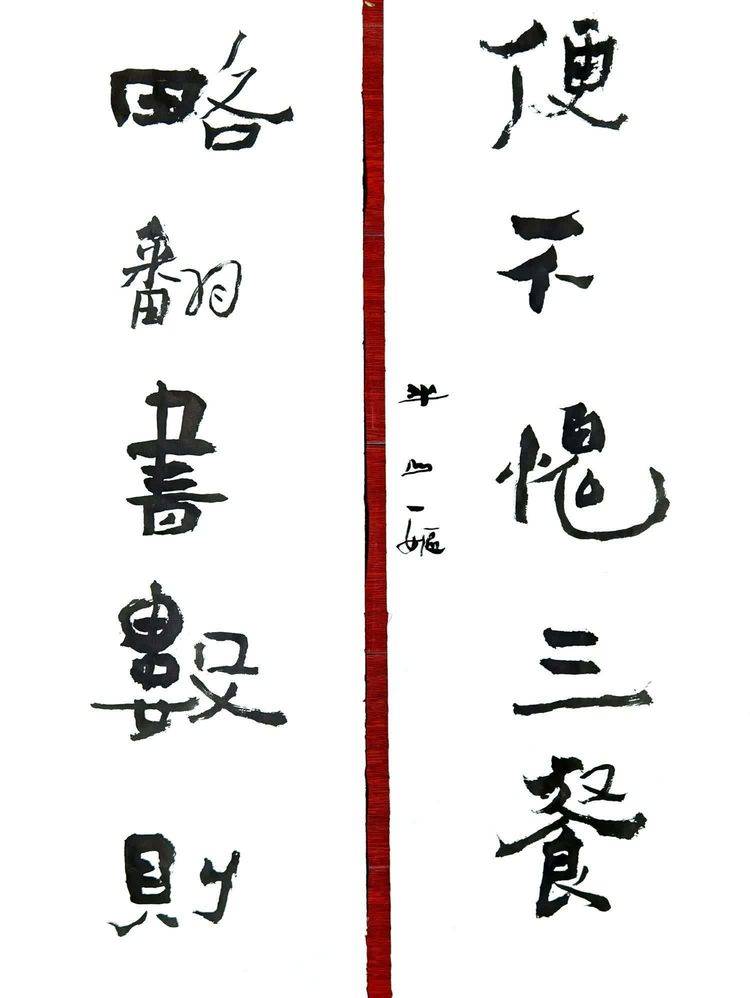 略翻書數則
便不愧三餐
半山一嫗